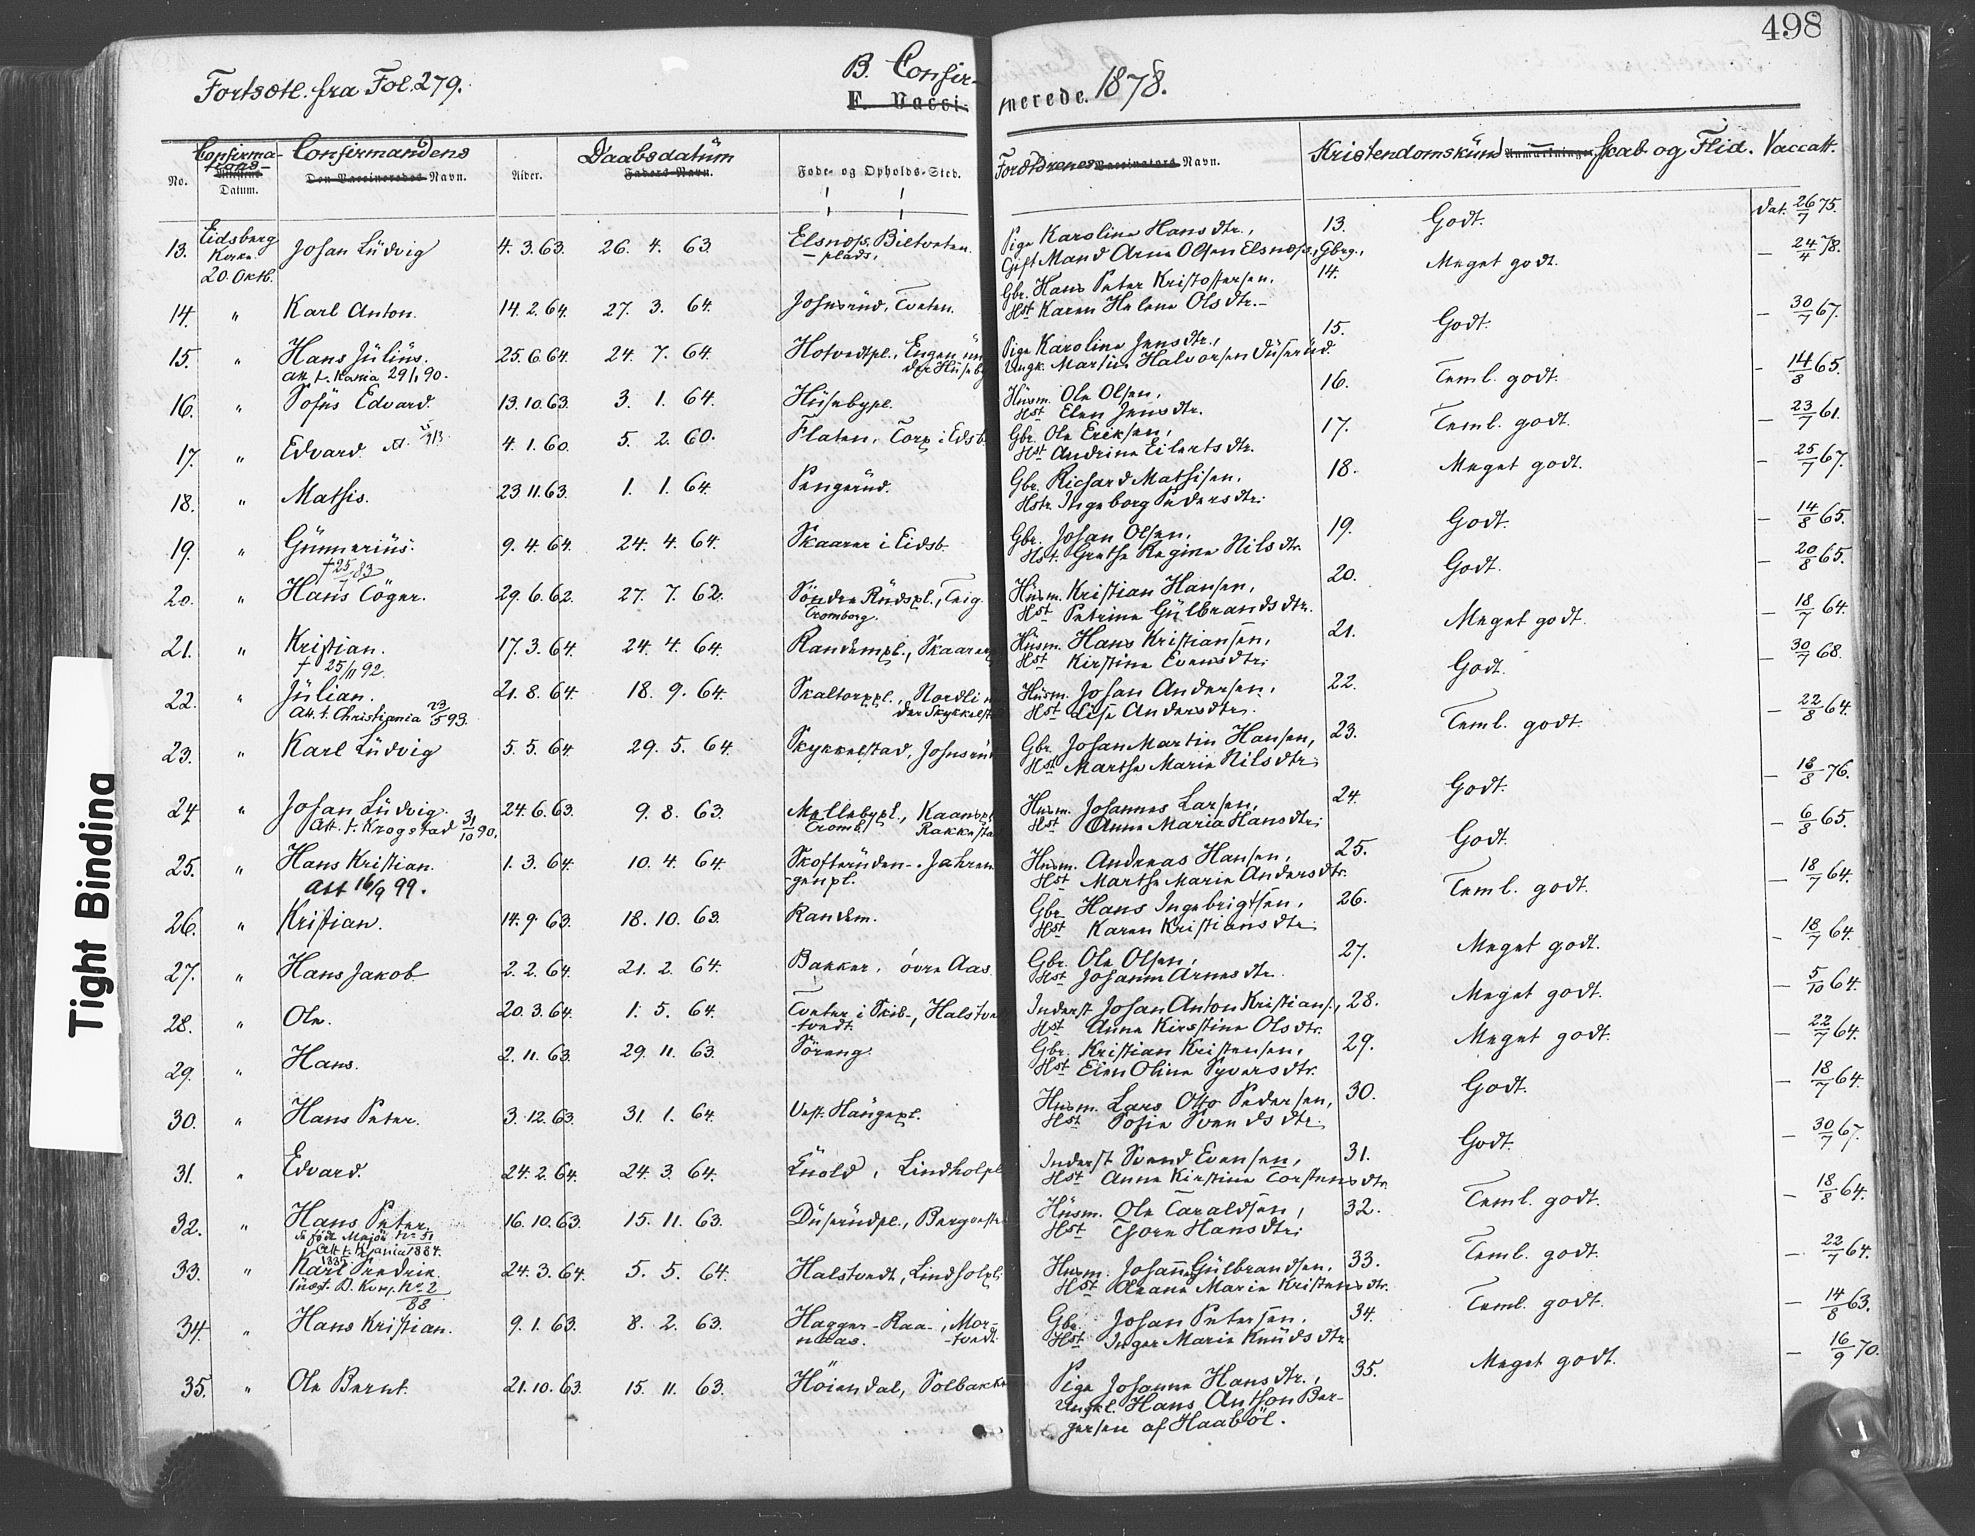 498
Fortsætl. fra Fol. 279.
B. Confir-
merede. 1878.
F. Vacci-
No. Confirma-tions Datum. Confirmandens Navn. Alder. Daabsdatum Føde- og Opholds-Sted. Forældrenes Navn. Kristendomskundskab og Flid. Vaccatt.
Den Vaccineredes Faders Navn. Vaccinators Anmærkninger.
13. Eidsberg Kirke 20. Oktb. Johan Ludvig 4.3.63. 26. 4. 63 Elsnæs, Biltveten-plads. Pige Karoline Hansdtr., Gift Mand Arne Olsen Elsnæs, Gbrg. 13. Godt. dat. 26/7 75.
14. " Karl Anton. 14.2.64. 27. 3. 64. Johnsrud, Tveten. Gbr. Hans Peter Kristoffersen, Hst Karen Helene Olsdtr. 14. Meget godt. – 24/4 78.
15. " Hans Julius. 25.6.64. 24. 7. 64. Hotvedtpl., Engen un-der Huseby Pige Karoline Jensdtr., Ungk. Martin Halvorsen Duserud. 15. Godt. – 30/7 67.
Att. t. Kania 29/1 90.
16. " Sofus Edvard. 13.10.63. 3. 1. 64. Husebypl. Husm. Ole Olsen, Hst Elen Jensdtr. 16. Teml. godt. – 14/8 65.
17. " Edvard. 4.1.60. 5. 2. 60. Flaten, Torp i Eidsb. Gbr. Ole Eriksen, Hst Andrine Eilertsdtr. 17. Teml. godt. – 23/7 61.
18. " Mathis. 23.11.63. 1. 1. 64. Pengerud. Gbr. Richard Mathisen, Hstr. Ingeborg Pedersdtr. 18. Meget godt. – 25/7 67.
19. " Gunnerius. 9.4.64. 24. 4. 64. Skaarer i Eidsb. Gbr. Johan Olsen, Hst. Grethe Regine Nilsdtr. 19. Godt. – 14/8 65.
† 25/7 83
20. " Hans Töger. 29.6.62. 27. 7. 62. Söndre Rudspl., Teig. Tromborg. Husm. Kristian Hansen, Hst Petrine Gulbrandsdtr. 20. Godt. – 20/8 65.
21. " Kristian. 17.3.64. 24. 4. 64. Randempl., Skaarerp Husm. Hans Kristiansen, Hst Kirstine Evensdtr. 21. Meget godt. – 18/7 64.
† 25/11 92.
22. " Julian. 21.8.64. 18. 9. 64. Skaltorppl., Nordli un-der Skykkelst Husm. Johan Andersen, Hst Lise Andersdtr. 22. Godt. – 30/7 68.
Att. t. Christiania 23/5 93.
23. " Karl Ludvig 5.5.64. 29. 5. 64. Skykkelstad, Johnsrud Gbr. Johan Martin Hansen, Hst Marthe Marie Nilsdtr. 23. Teml. godt. – 22/8 64.
24. " Johan Ludvig. 24.6.63. 9. 8. 63. Mellebypl., Kaanspl Tromb. Rakkesta Husm. Johannes Larsen, Hst Anne Maria Hansdtr. 24. Godt. – 18/8 76.
Att. t. Krogstad 31/10 90.
25. " Hans Kristian. 1.3.64. 10. 4. 64. Skofteruden-. Jahren-genpl. Husm. Andreas Hansen, Hst Marthe Marie Andersdtr. 25. Godt. – 6/8 65.
Att 16/9 99.
26. " Kristian. 14.9.63. 18. 10. 63. Randem. Gbr. Hans Ingebrigtsen, Hst Karen Kristiansdtr. 26. Teml. godt. – 18/7 64.
27. " Hans Jakob 2.2.64. 21. 2. 64. Bakker, övre Aas. Gbr. Ole Olsen, Hst Johanne Arnesdtr. 27. Meget godt. – 18/7 64.
28. " Ole. 20.3.64. 1. 5. 64. Tveter i Skib-, Halstve-tvedt. Inderst Johan Anton Kristians., Hst Anne Kirstine Olsdtr. 28. Meget godt. – 5/10 64.
29. " Hans. 2.11.63. 29. 11. 63. Söreng. Gbr. Kristian Kristensen, Hst Elen Oline Syversdtr. 29. Meget godt. – 22/7 64.
30. " Hans Peter. 3.12.63. 31. 1. 64. Vest. Haugepl. Husm. Lars Otto Pedersen, Hst Sofie Svendsdtr. 30. Godt. – 18/7 64.
31. " Edvard. 24.2.64. 24. 3. 64. Lindholpl. Inderst Svend Evensen, Hst Anne Kirstine Torstensdtr. 31. Godt. – 30/7 67.
32. " Hans Peter. 16.10.63. 15. 11. 63. Duserudpl., Bergvest Husm. Ole Taraldsen, Hst Tjoren Hansdtr. 32. Teml. godt. – 18/8 64.
Att. t. Kjania 1884.
33. " Karl Fredrik. 24.3.64. 5. 5. 64. Halstvedt, Lindholpl. Husm. Johan Gulbrandsen, Hst Oleane Marie Kristensdtr. 33. Teml. godt. – 22/7 64.
34. " Hans Kristian. 9.1.63. 8. 2. 63. Hagger-Raa-, Mor-naas. -tvedt. Gbr. Johan Petersen, Hst Inger Marie Knudsdtr. 34. Teml. godt. – 14/8 63.
35. " Ole Bernt. 21.10.63. 15. 11. 63. Höiendal, Solbakke Pige Johanne Hansdtr., Ungkl. Hans Anthon Ber-gersen af Haaböl. 35. Meget godt. – 16/9 70.
Tight Binding